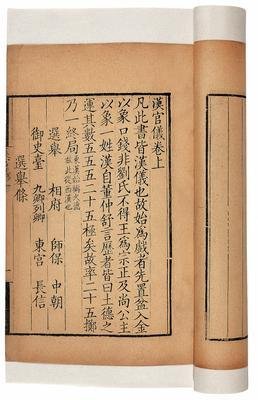 漢官儀卷上
凡此書皆漢儀也故始為戲者先置盆入金
以象口錢非劉氏不得王為宗正及尚公主
以象一姓漢自董仲舒言歷者皆曰土德之
運其數五五五二十五極矣故率二十五擲
乃一終局東漢稱火德故此從西漢也
選舉 相府 師保 中朝
御史臺 九卿列卿 東宮 長信
選舉條